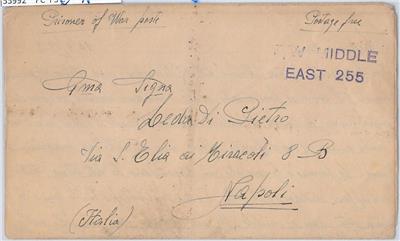 Prisoner of War poste
Postage free
P.W. MIDDLE
EAST 255
Gma Signa
Di Pietro
Via S. Elia ai Miracoli 8 B
Napoli
(Italia)